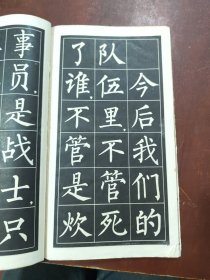 今后我们的
队伍里，不管死
了谁，不管是炊
事员，是战士，只